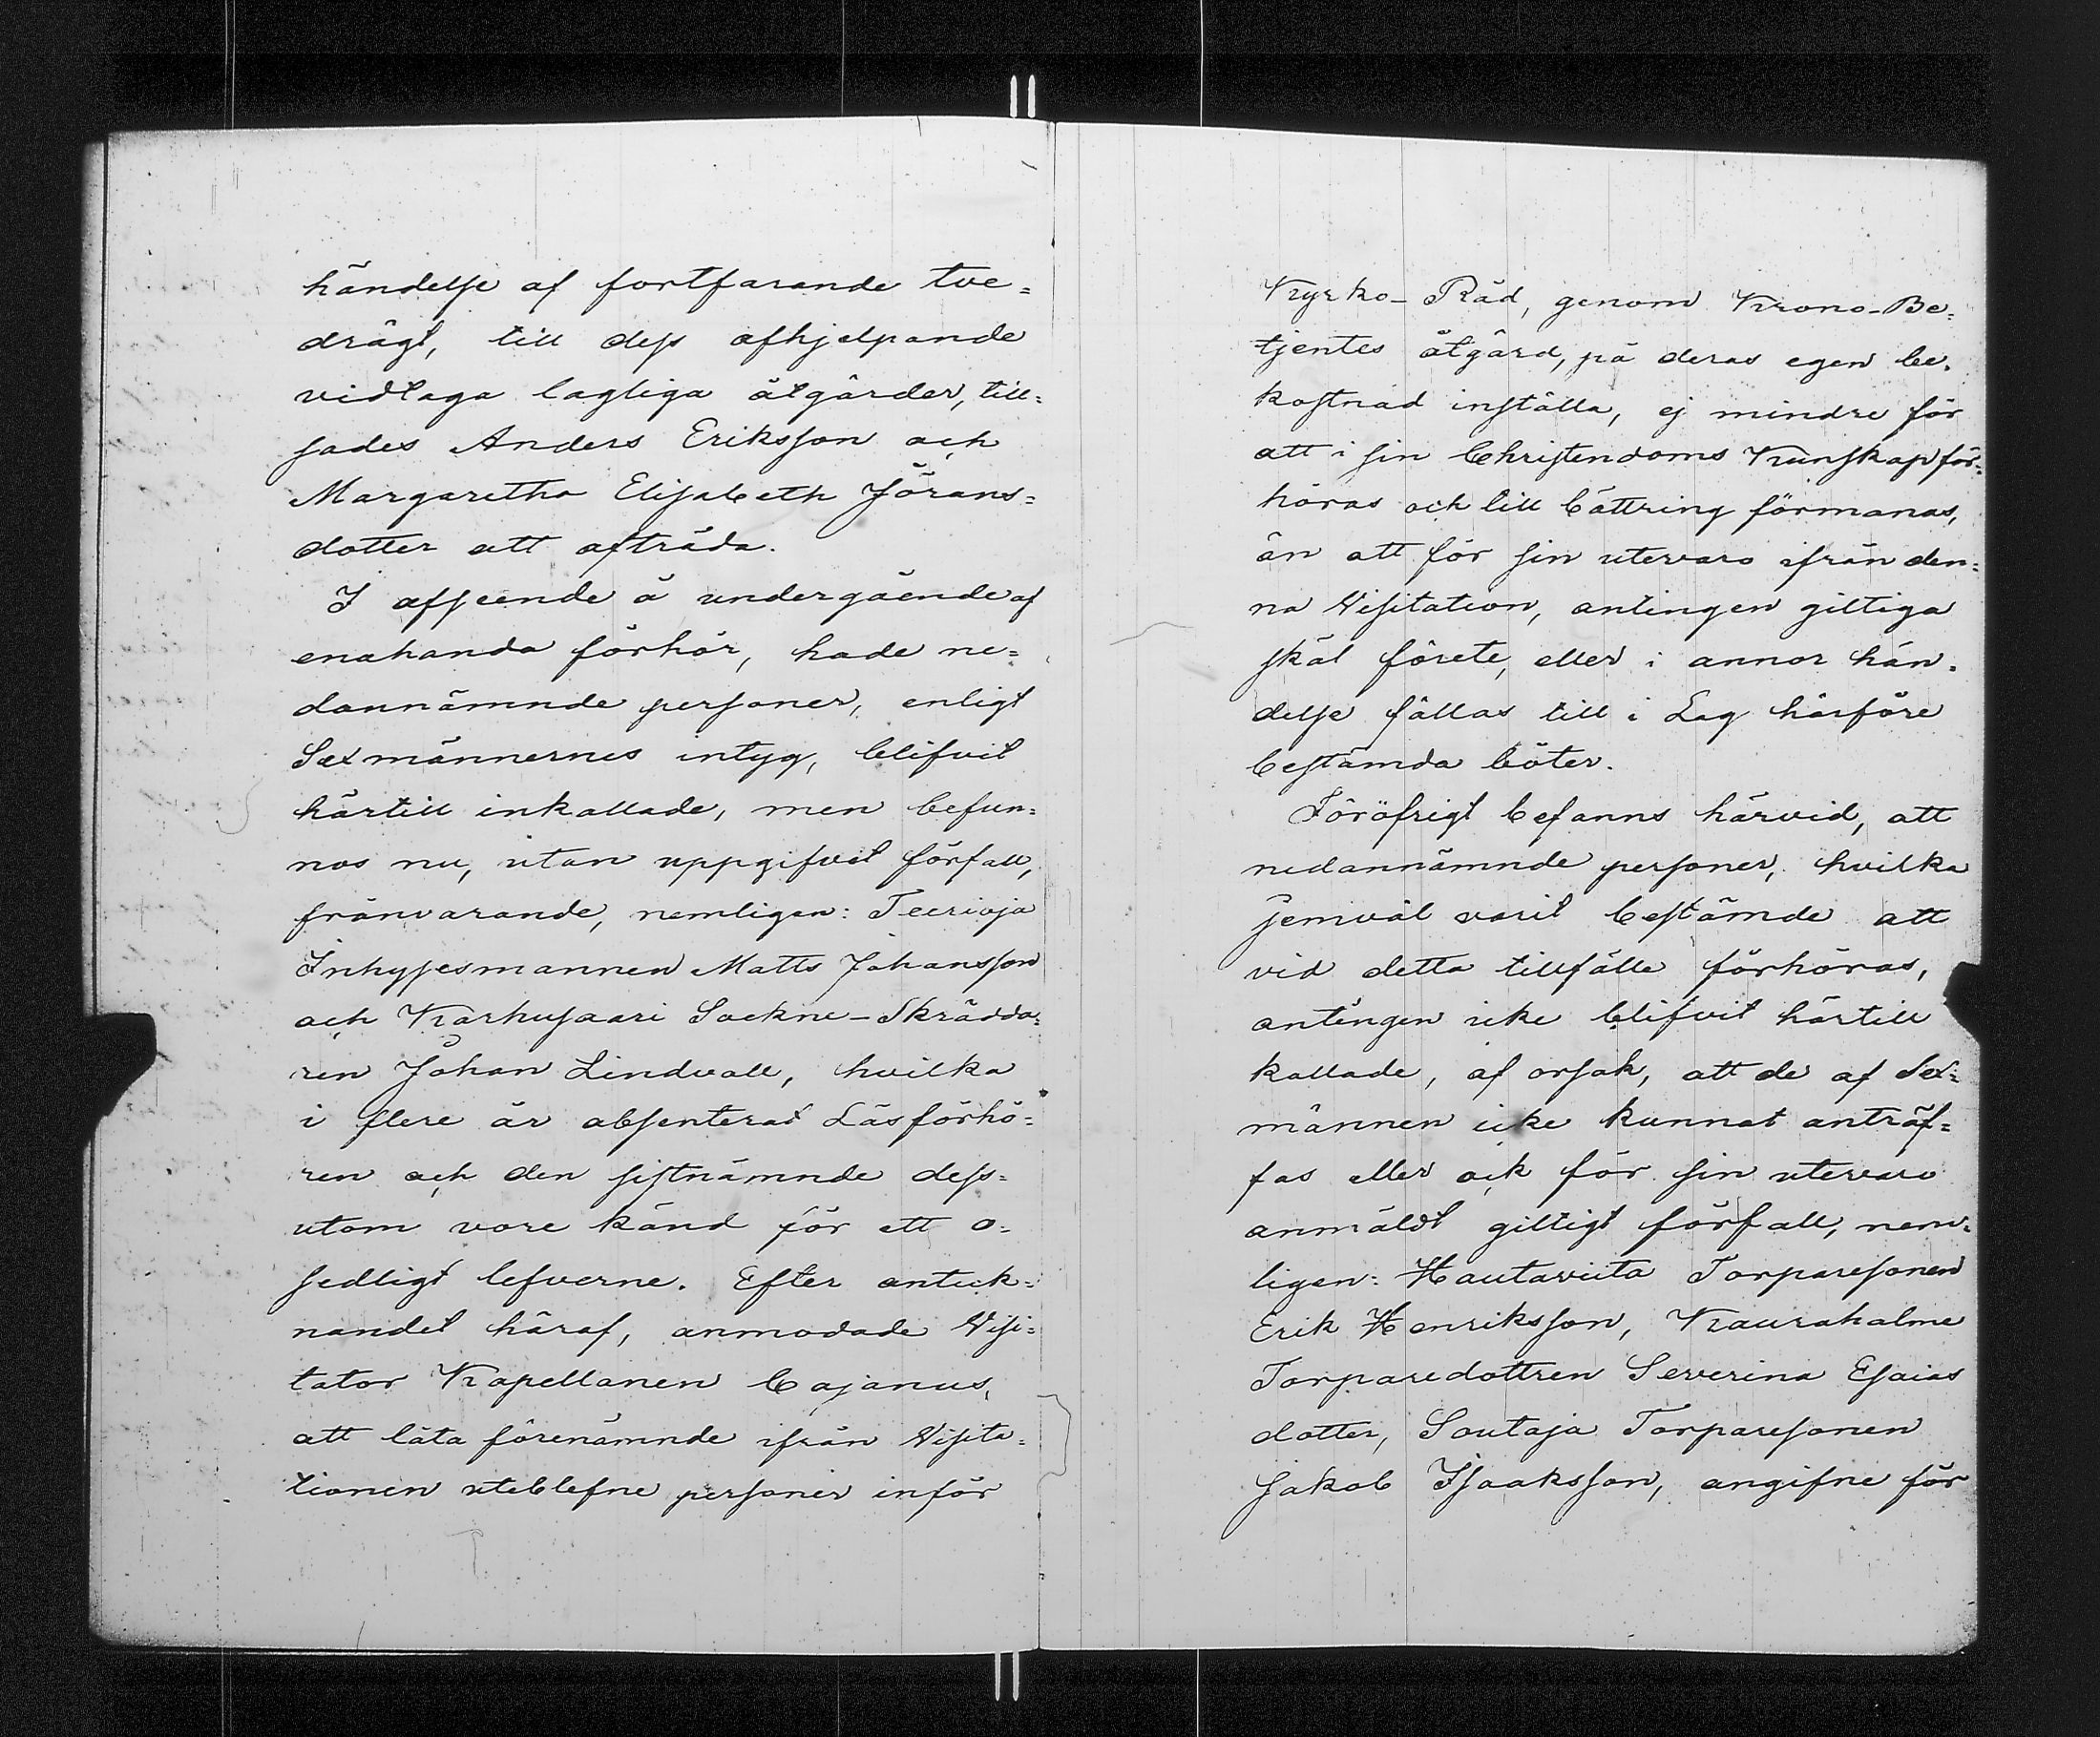 händelse af fortfarande tve=
drägt, till dess afhjelpande
vidtaga lagliga åtgärder, till=
sades Anders Eriksson och
Margaretha Elisabeth Jörans=
dotter att afträda.
I afseende å undergående af
enahanda förhör, hade ne=
dannämnde personer, enligt
Sexmännernes intyg, blifvit
härtill inkallade, men befun=
nos nu, utan uppgifvet förfall,
frånvarande, nemligen: Teerioja
Inhysesmannen Matts Johansson
och Karhusaari Sockne-Skrädda=
ren Johan Lindvall, hvilka
i flere år absenterat Läsförhö=
ren och den sistnämnde dess=
utom vore känd för ett o=
sedligt lefverne. Efter anteck=
nandet häraf, anmodade Visi=
tator Kapellanen Cajanus,
att låta förenämnde ifrån Visita=
tionen uteblefne personer inför
Kyrko-Råd, genom Krono-Be=
tjentes åtgärd, på deras egen be=
kostnad inställa, ej mindre för
att i sin Christendoms Kunskap för=
höras och till bättring förmanas,
än att för sin utevaro ifrån den=
na Visitation, antingen giltiga
skäl förete, eller i annor hän=
delse fällas till i Lag härföre
bestämda böter.
Föröfrigt befanns härvid, att
nedannämnde personer, hvilka
jemväl varit bestämde att
vid detta tillfälle förhöras,
antingen icke blifvit härtill
kallade, af orsak, att de af Sex=
männen icke kunnat anträf=
fas eller ock för sin utevaro
anmäldt giltigt förfall, nem=
ligen: Hautaviita Torparesonen
Erik Henriksson, Kaurahalme
Torparedottren Severina Esaias
dotter, Soutaja Torparesonen
Jakob Isaaksson, angifne för